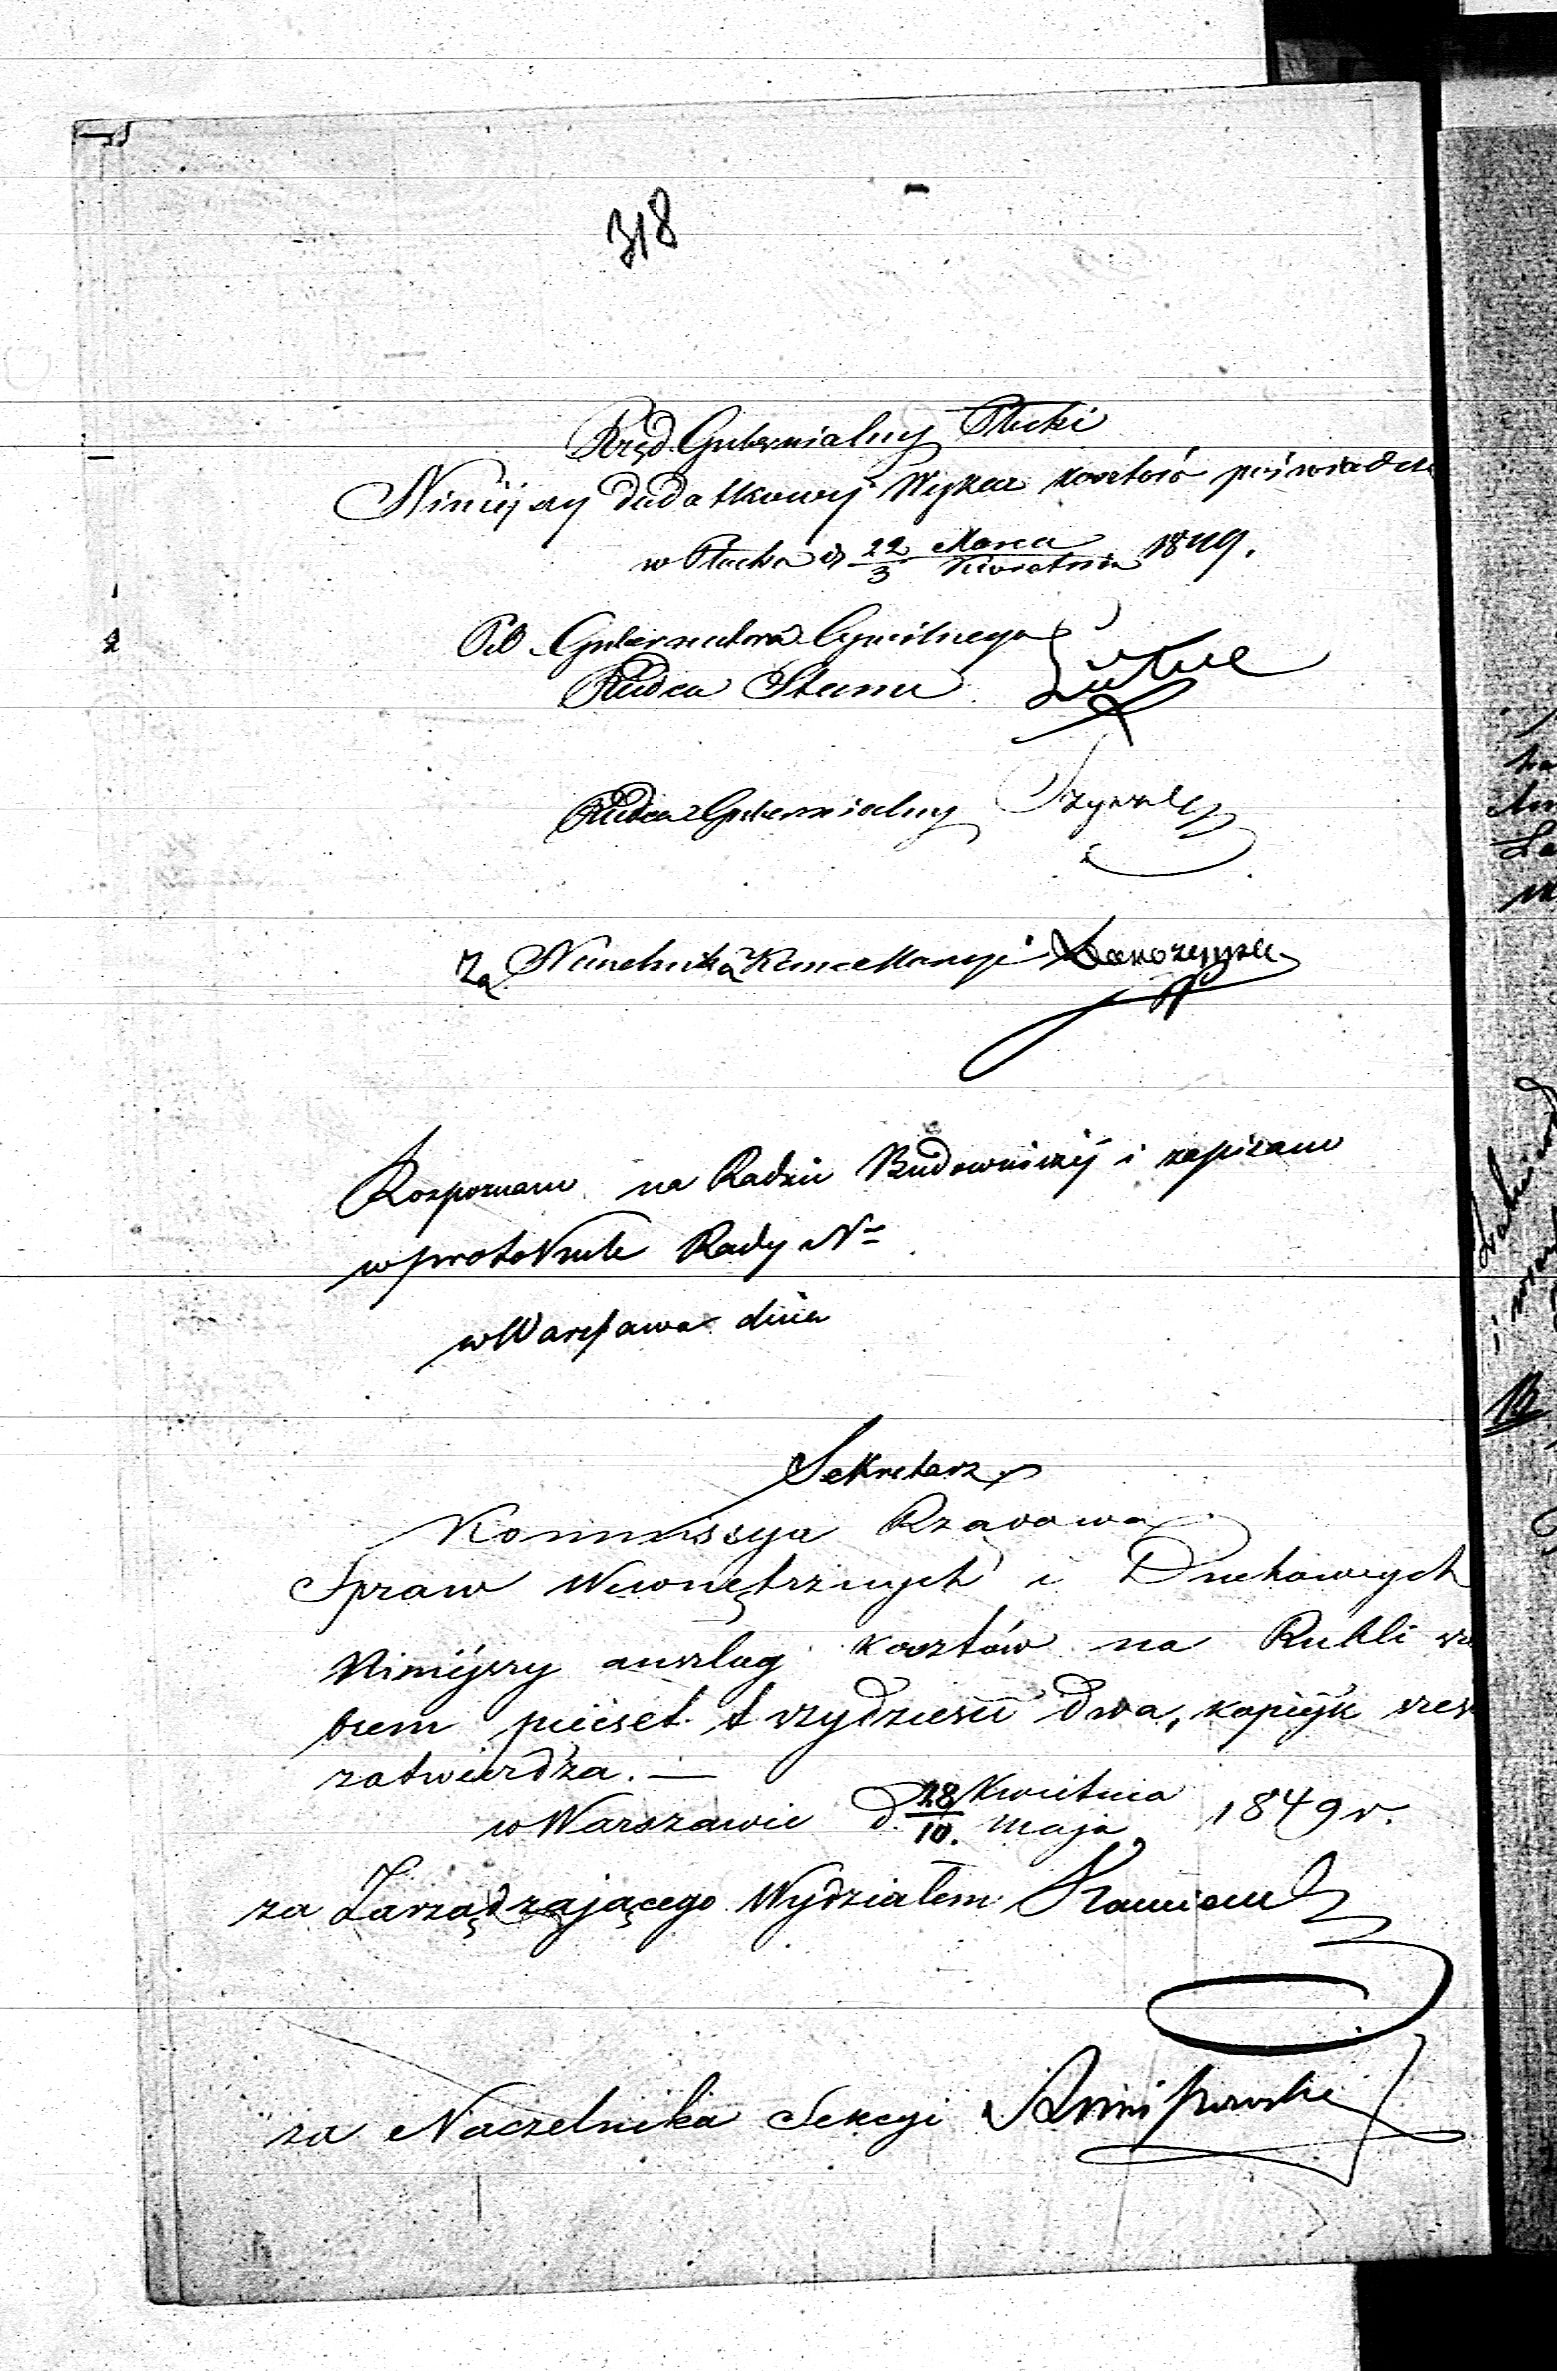 318
Rząd Gubernialny Płocki
Niniejszy dodatkowy Wykaz kosztów poświadcza
w Płocku d 22/3 Marca/Kwietnia 1849.
P.O. Gubernatora Cywilnego
Radca Stanu
Radca Gubernialny
Za Naczelnika Kancellaryi
Rozpoznano na Radzie Budowniczéj i zapisano
w protokule Rady No
w Warszawie dnia
Sekretarz
Kommissya Rządowa
Spraw Wewnętrznych i Duchownych
Niniejszy anszlag kosztów na Rubli sre
brem pięćset trzydzieści dwa, kopiejk
zatwierdza. —
w Warszawie d. 28/10. Kwietnia/Maja 1849 r.
za Zarządzającego Wydziałem
za Naczelnika Sekcyi